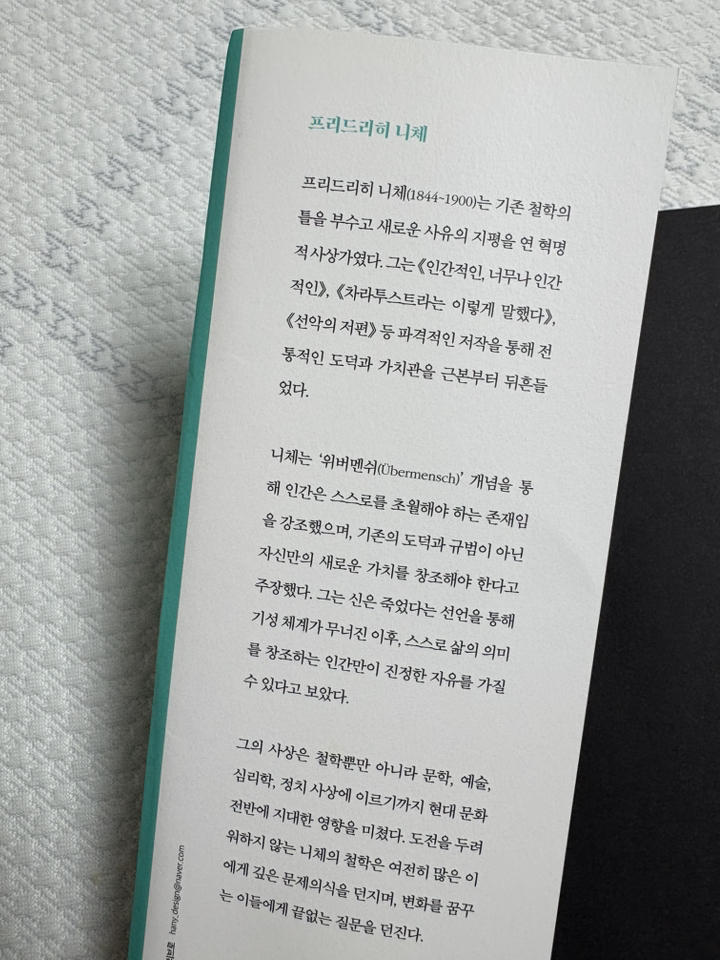 프리드리히 니체
프리드리히 니체(1844~1900)는 기존 철학의
틀을 부수고 새로운 사유의 지평을 연 혁명
적 사상가였다. 그는 《인간적인, 너무나 인간
적인》, 《차라투스트라는 이렇게 말했다》,
《선악의 저편》 등 파격적인 저작을 통해 전
통적인 도덕과 가치관을 근본부터 뒤흔들
었다.
니체는 ‘위버멘쉬(Übermensch)’ 개념을 통
해 인간은 스스로를 초월해야 하는 존재임
을 강조했으며, 기존의 도덕과 규범이 아닌
자신만의 새로운 가치를 창조해야 한다고
주장했다. 그는 신은 죽었다는 선언을 통해
기성 체계가 무너진 이후, 스스로 삶의 의미
를 창조하는 인간만이 진정한 자유를 가질
수 있다고 보았다.
그의 사상은 철학뿐만 아니라 문학, 예술,
심리학, 정치 사상에 이르기까지 현대 문화
전반에 지대한 영향을 미쳤다. 도전을 두려
워하지 않는 니체의 철학은 여전히 많은 이
에게 깊은 문제의식을 던지며, 변화를 꿈꾸
는 이들에게 끝없는 질문을 던진다.
hany_design@naver.com